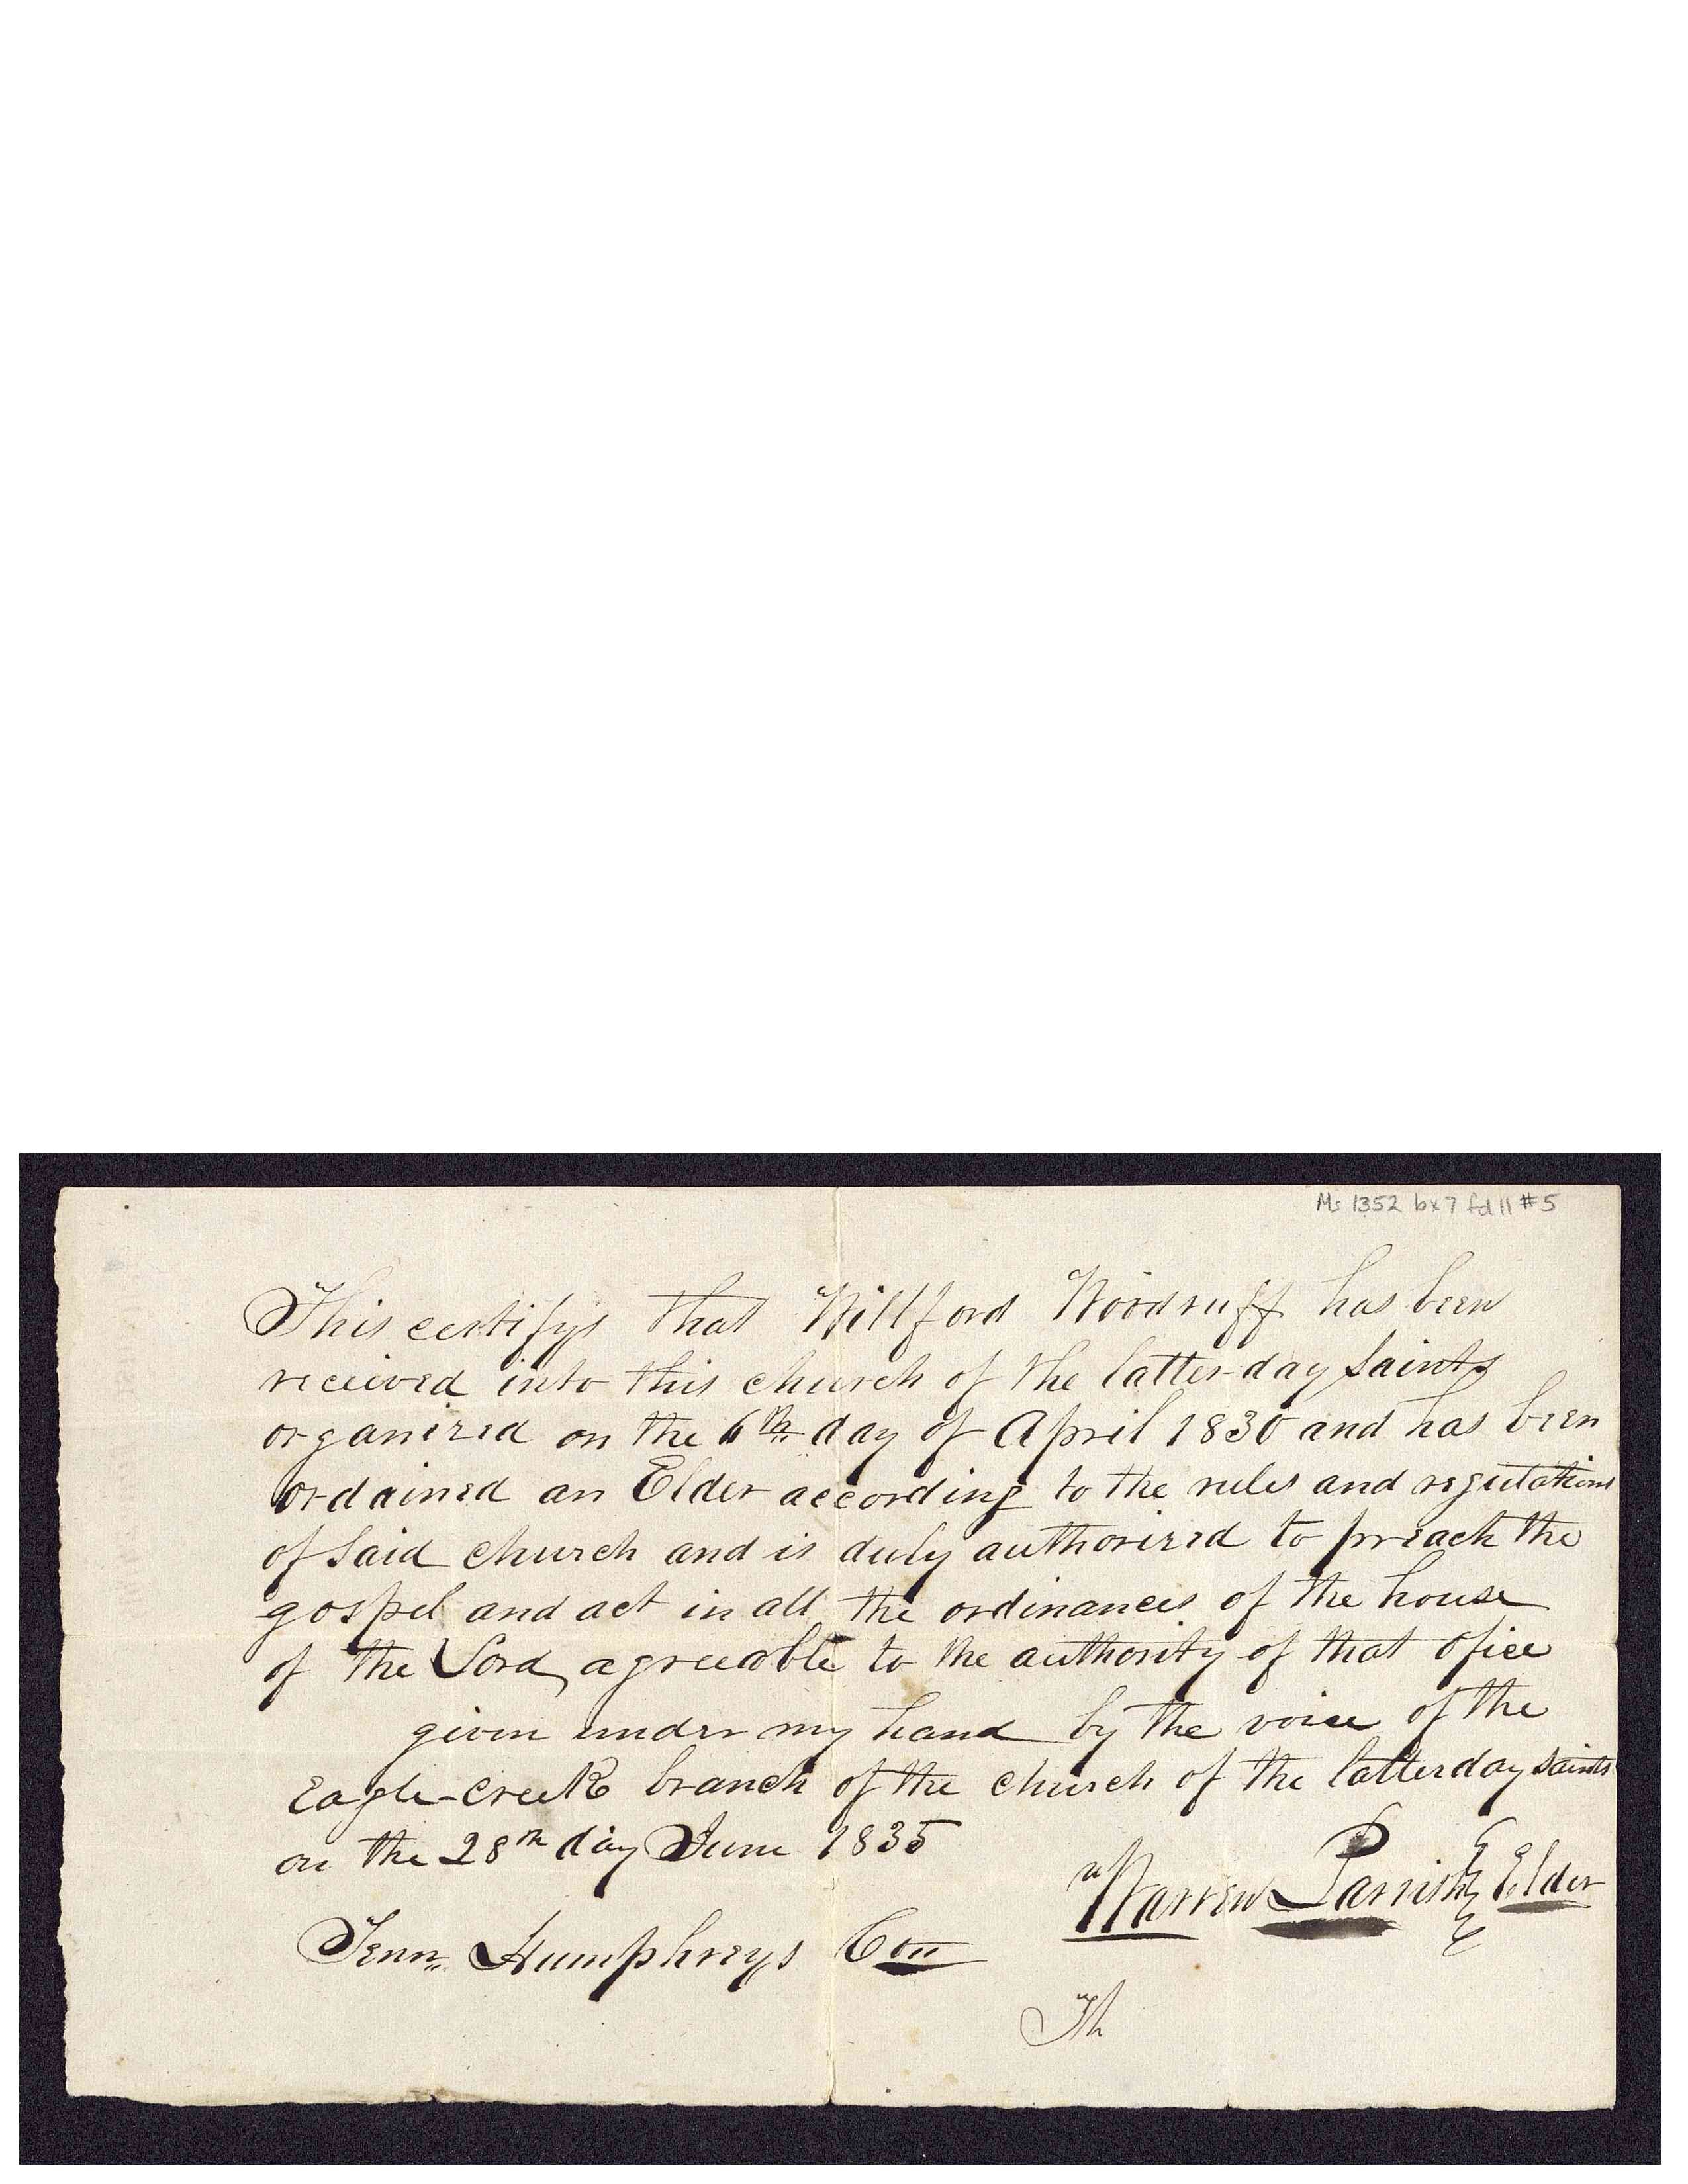 Ms 1352 bx 7 fd 11 #5
This certifys that Willford Woodruff has been
received into this church of the latter-day saints
organized on the 6th day of April 1830 and has been
ordained an Elder according to the rules and regulations
of said church and is duly authorized to preach the
gospel and act in all the ordinances of the house
of the Lord, agreeable to the authority of that ofice
given under my hand by the voice of the
Eagle-creek branch of the church of the latterday saints
on the 28th day June 1835
Warren Parrish Elder
Tenn. Humphreys Cou
Th